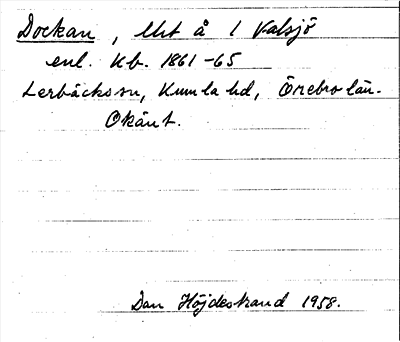 Dockan, lht å 1 Valsjö
enl. Kb. 1861-65
Lerbäcks sn, Kumla hd, Örebro län.
Okänt.
Dan Höjdestrand 1958.